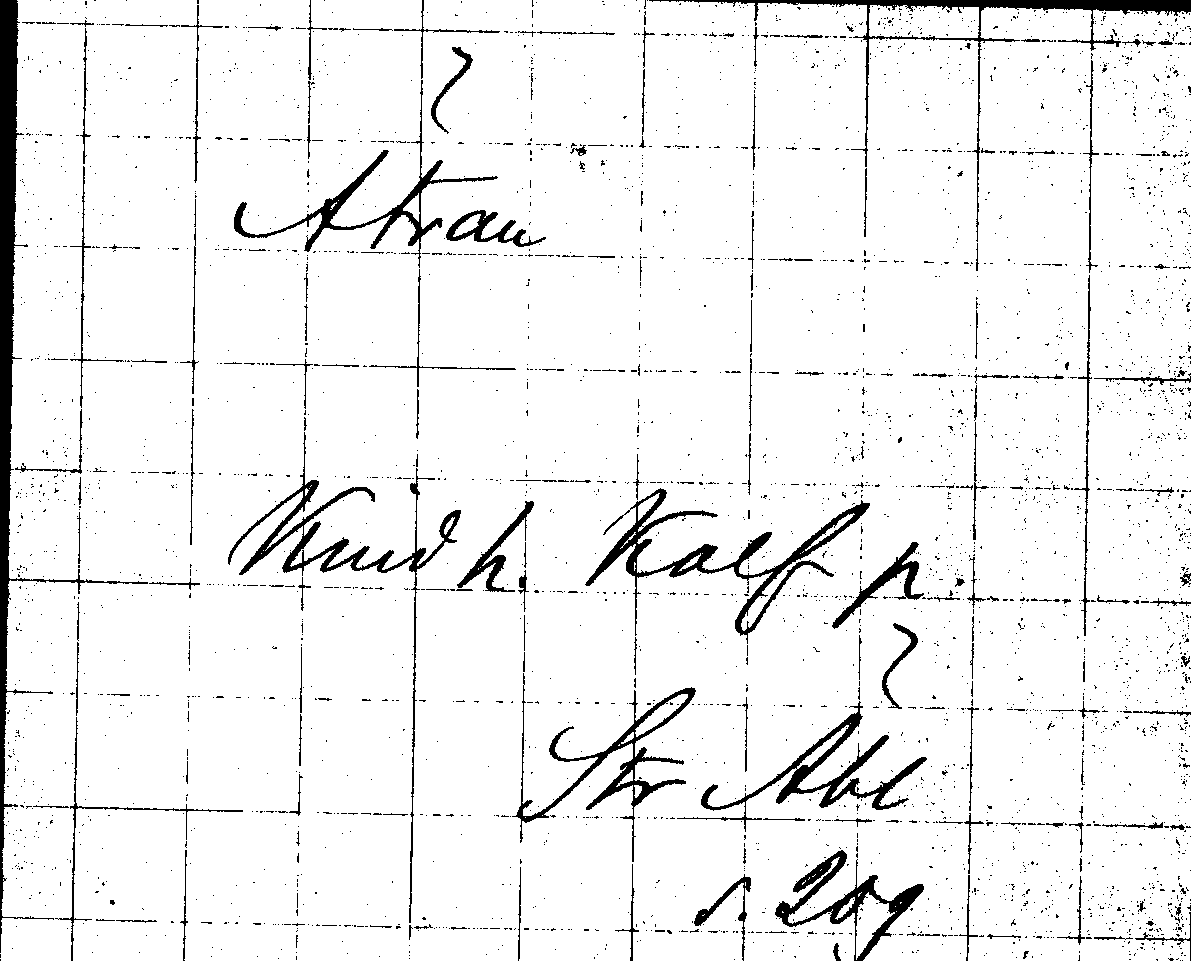 Atran
Knid h. Kalf p.
Str Abl
s. 209